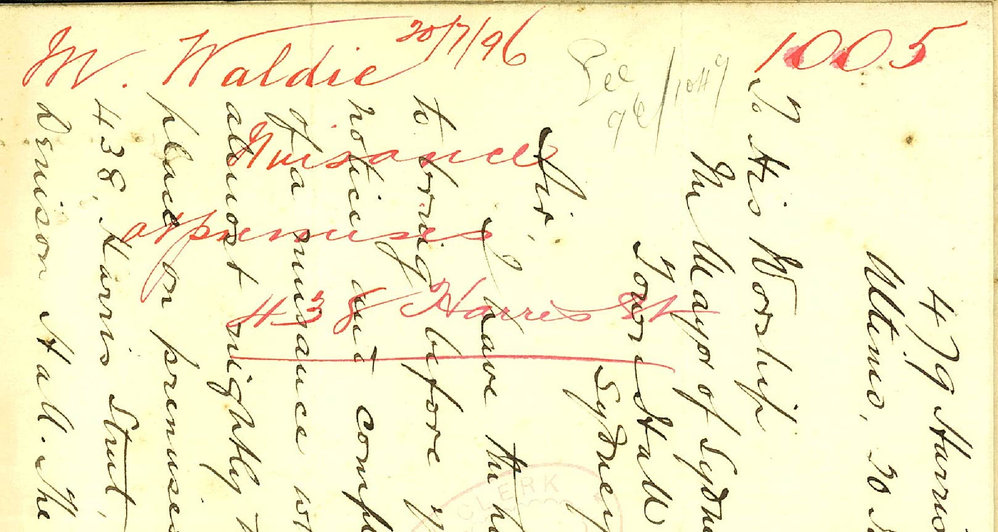 M. Waldie 20/7/96
1005
See
96/1049
Nuisance
at premises
438 Harris St
479 Harri
Ultimo, 20 J
To His Worship
The Mayor of Sydn
Town Hall
Sydney
Sir,
I have the ho
to bring before y
notice and comp
of a nuisance w
almost nightly t
place on premises
438, Harris Street,
Denison Hall. The
CLERK